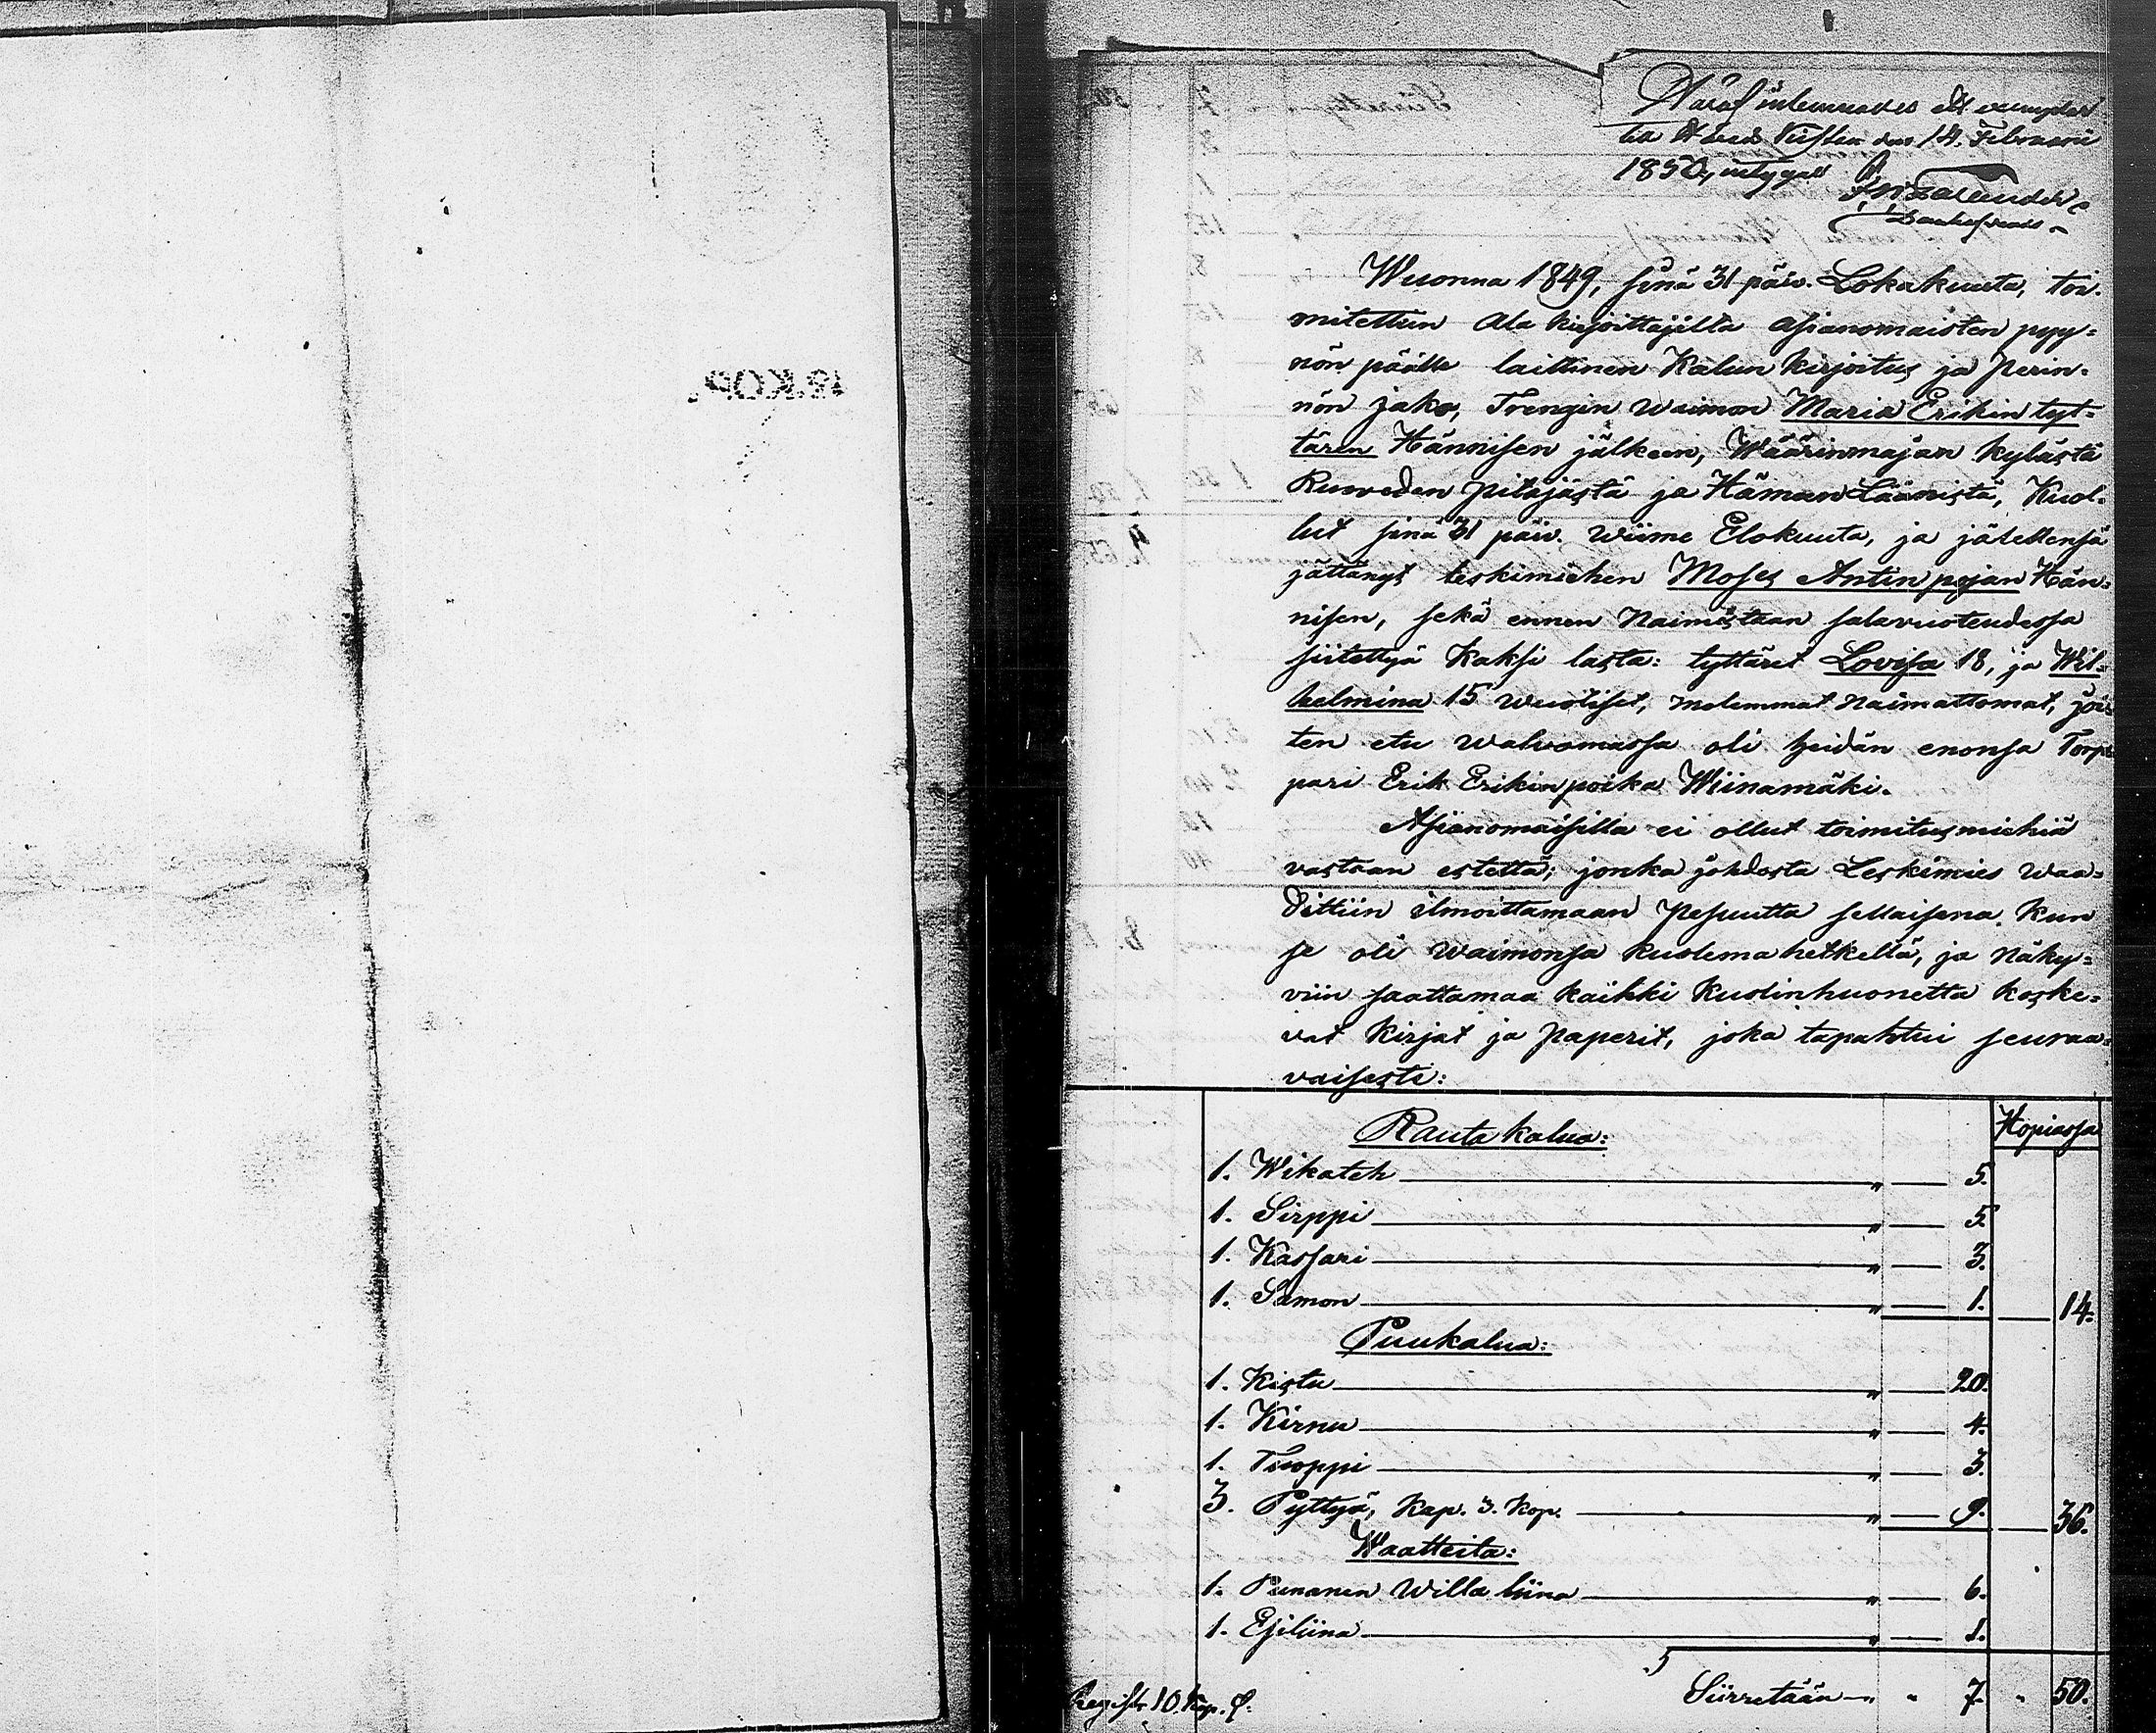 18.KOP.
inlemnades ett exemplar
den 14. Februarii
1850, intygar
Wuonna 1849, sinä 31 päiv. Lokakuuta, toi-
mitettun ala kirjoittajilta asianomaisten pyy-
nön päälle laillinen Kalun kirjoitus ja Perin-
nön jako, Trengin waimon Maria Erikin tyt-
tären Hännisen jälkeen, Wäärinmajan kylästä
Ruoveden pitäjästä ja Hämeen Läänistä, Kuol-
lut sinä 31 päiv. wiime Elokuuta, ja jälellensä
jättänyt leskimiehen Moses Antin pojan Hän-
nisen, sekä ennen Naimistaan salavuoteudessa
siitettyä Kaksi lasta: tyttäret Lovisa 18, ja Wil-
helmina 15 wuotiset, molemmat Naimattomat, jois
ten etu walvomassa oli heidän enonsa Torp-
pari Erik Erikin poika Wiinamäki.
Asianomaisilla ei ollut toimitusmiehiä
vastaan estettä; jonka johdosta Leskimies waa-
dittiin ilmoittamaan Pesuutta sellaisena kun
se oli waimonsa kuolema hetkellä, ja Näky-
viin saattamaa kaikki kuolinhuonetta koske-
vat kirjat ja paperit, joka tapahtui seuraa-
vaisesti:
Rauta kalua: Hopiassa
1. Wikateh " 5.
1. Sirppi " 5.
1. Kassari " 3.
1. " 1. 14.
Puukalua:
1. Kistu " 20.
1. Kirnu " 4.
1. Tuoppi " 3.
3. Pyttyä, kap. 3. kop. " 9. 36.
Waatteita:
1. Punanen willa liina " 6.
1. Esiliina " 1.
Siirretään " " 7. " 50.
10. kop.